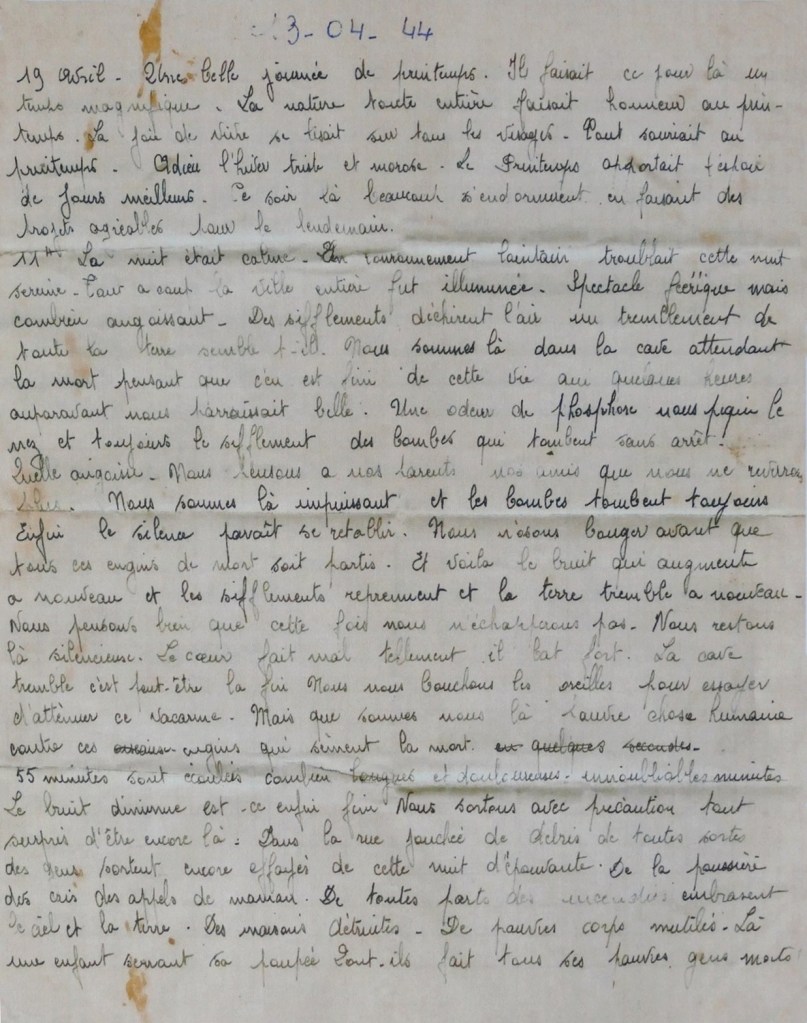 13-04-44
19 Avril - Très belle journée de printemps. Il faisait ce jour là un
temps magnifique. La nature toute entière faisait honneur au prin-
temps. La joie de vivre se lisait sur tous les visages. Tout souriait au
printemps. Adieu l'hiver triste et morose. Le Printemps apportait l'espoir
de jours meilleurs. Ce soir là beaucoup s'endorment en faisant des
projets agréables pour le lendemain.
La nuit était calme. Un ronronnement lointain troublait cette nuit
sereine. Tout a coup la ville entière fut illuminée. Spectacle féérique mais
combien angoissant. Des sifflements déchirent l'air un tremblement de
toute la terre semble t-il. Nous sommes là dans la cave attendant
la mort pensant que c'en est fini de cette vie qui quelques heures
auparavant nous parraissait belle. Une odeur de phosphose nous piquee le
nez et toujours le sifflement des bombes qui tombent sans arrêt.
Quelle angoisse. Nous pensons a nos parents nos amis que nous ne reverrons
plus. Nous sommes là impuissant et les bombes tombent toujours
Enfin le silence paraît se retablir. Nous n'osons bouger avant que
tous ces engins de mort soit partis. Et voila le bruit qui augmente
a nouveau et les sifflements reprennent et la terre tremble a nouveau.
Nous pensons bien que cette fois nous n'échapperons pas. Nous restons
là silencieuse. Le cœur fait mal tellement il bat fort. La cave
tremble c'est peut-être la fin Nous nous bouchons les oreilles pour essayer
d'atténuer ce vacarme. Mais que sommes nous là pauvre chose humaine
contre ces engins qui sèment la mort. en quelques secondes.
55 minutes sont écoulées combien longues et douloureuses. innoubliables minutes
Le bruit diminue est-ce enfin fini Nous sortons avec précaution tout
surpris d'être encore là. Dans la rue jonchée de débris de toutes sortes
des gens sortent encore effayés de cette nuit d'épouvante. De la poussière
des cris des appels de maman. De toutes parts des incendies embrasent
le ciel et la terre. Des maisons détruites - De pauvres corps mutilés. Là
une enfant serrant sa poupée Qont-ils fait tous ses pauvres gens morts